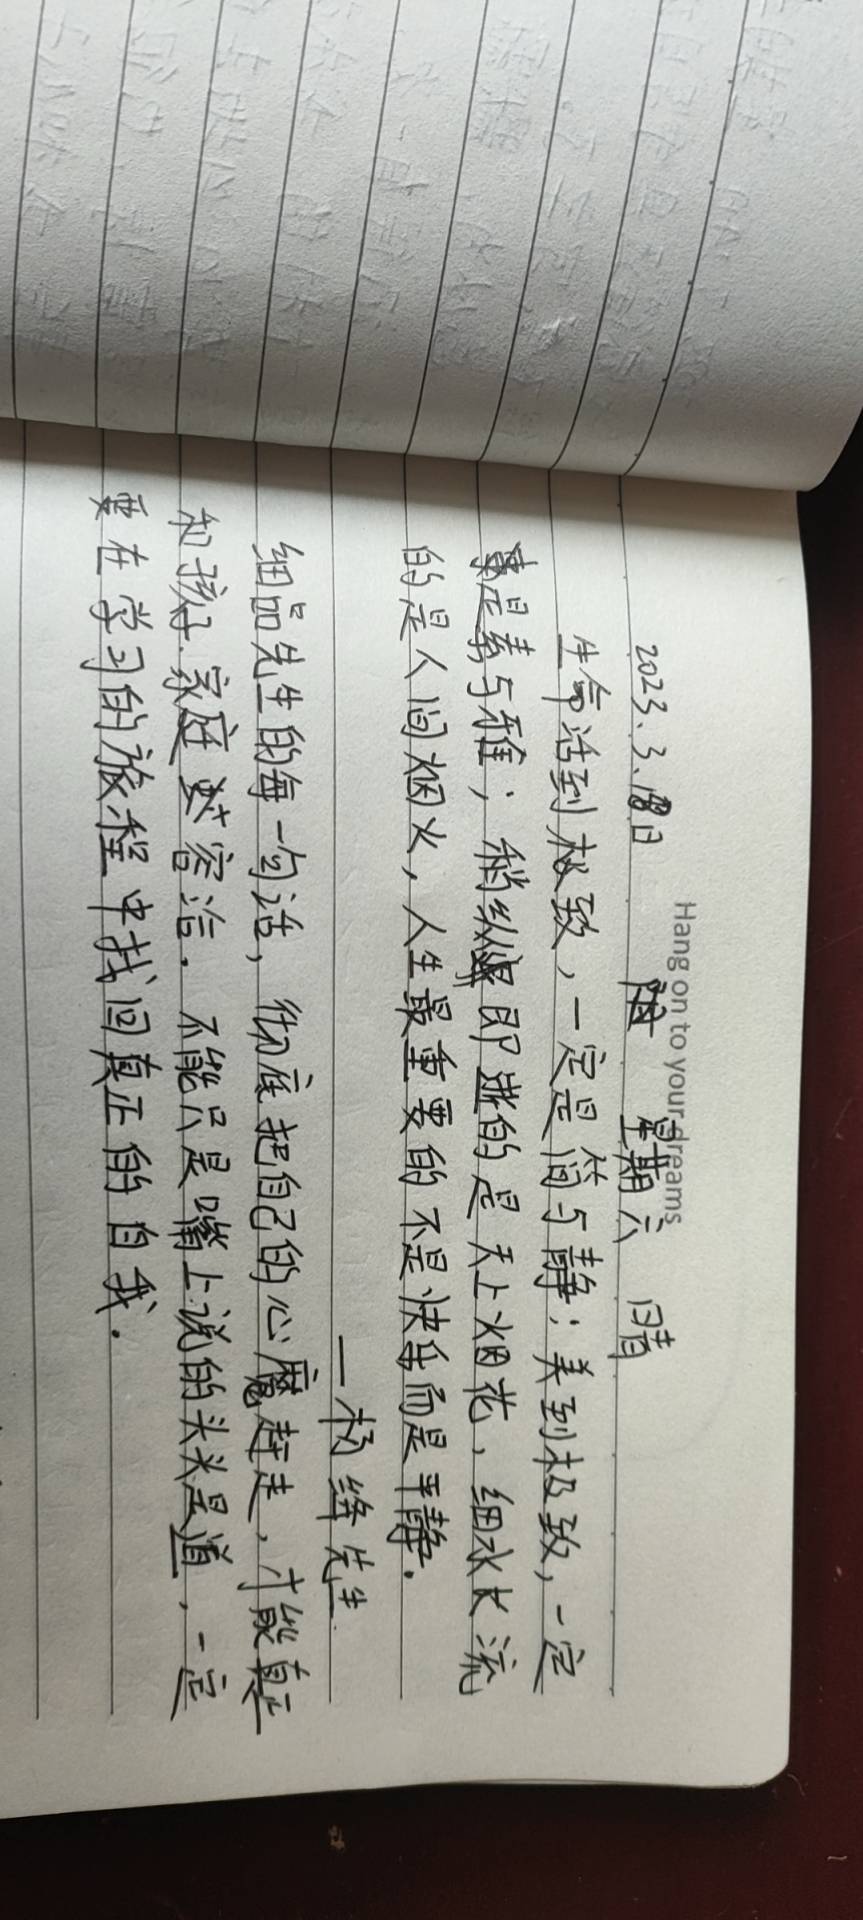 Hang on to your dreams
2023.3.18日 星期六 晴
生命活到极致，一定是简与静；美到极致，一定
是素与雅；稍纵即逝的是天上烟花，细水长流
的是人间烟火，人生最重要的不是快乐而是平静.
—杨绛先生
细品先生的每一句话，彻底把自己的心魔赶走，才能真正
和孩子.家庭 容洽. 不能只是嘴上说的头头是道，一定
要在学习的旅程中找回真正的自我.